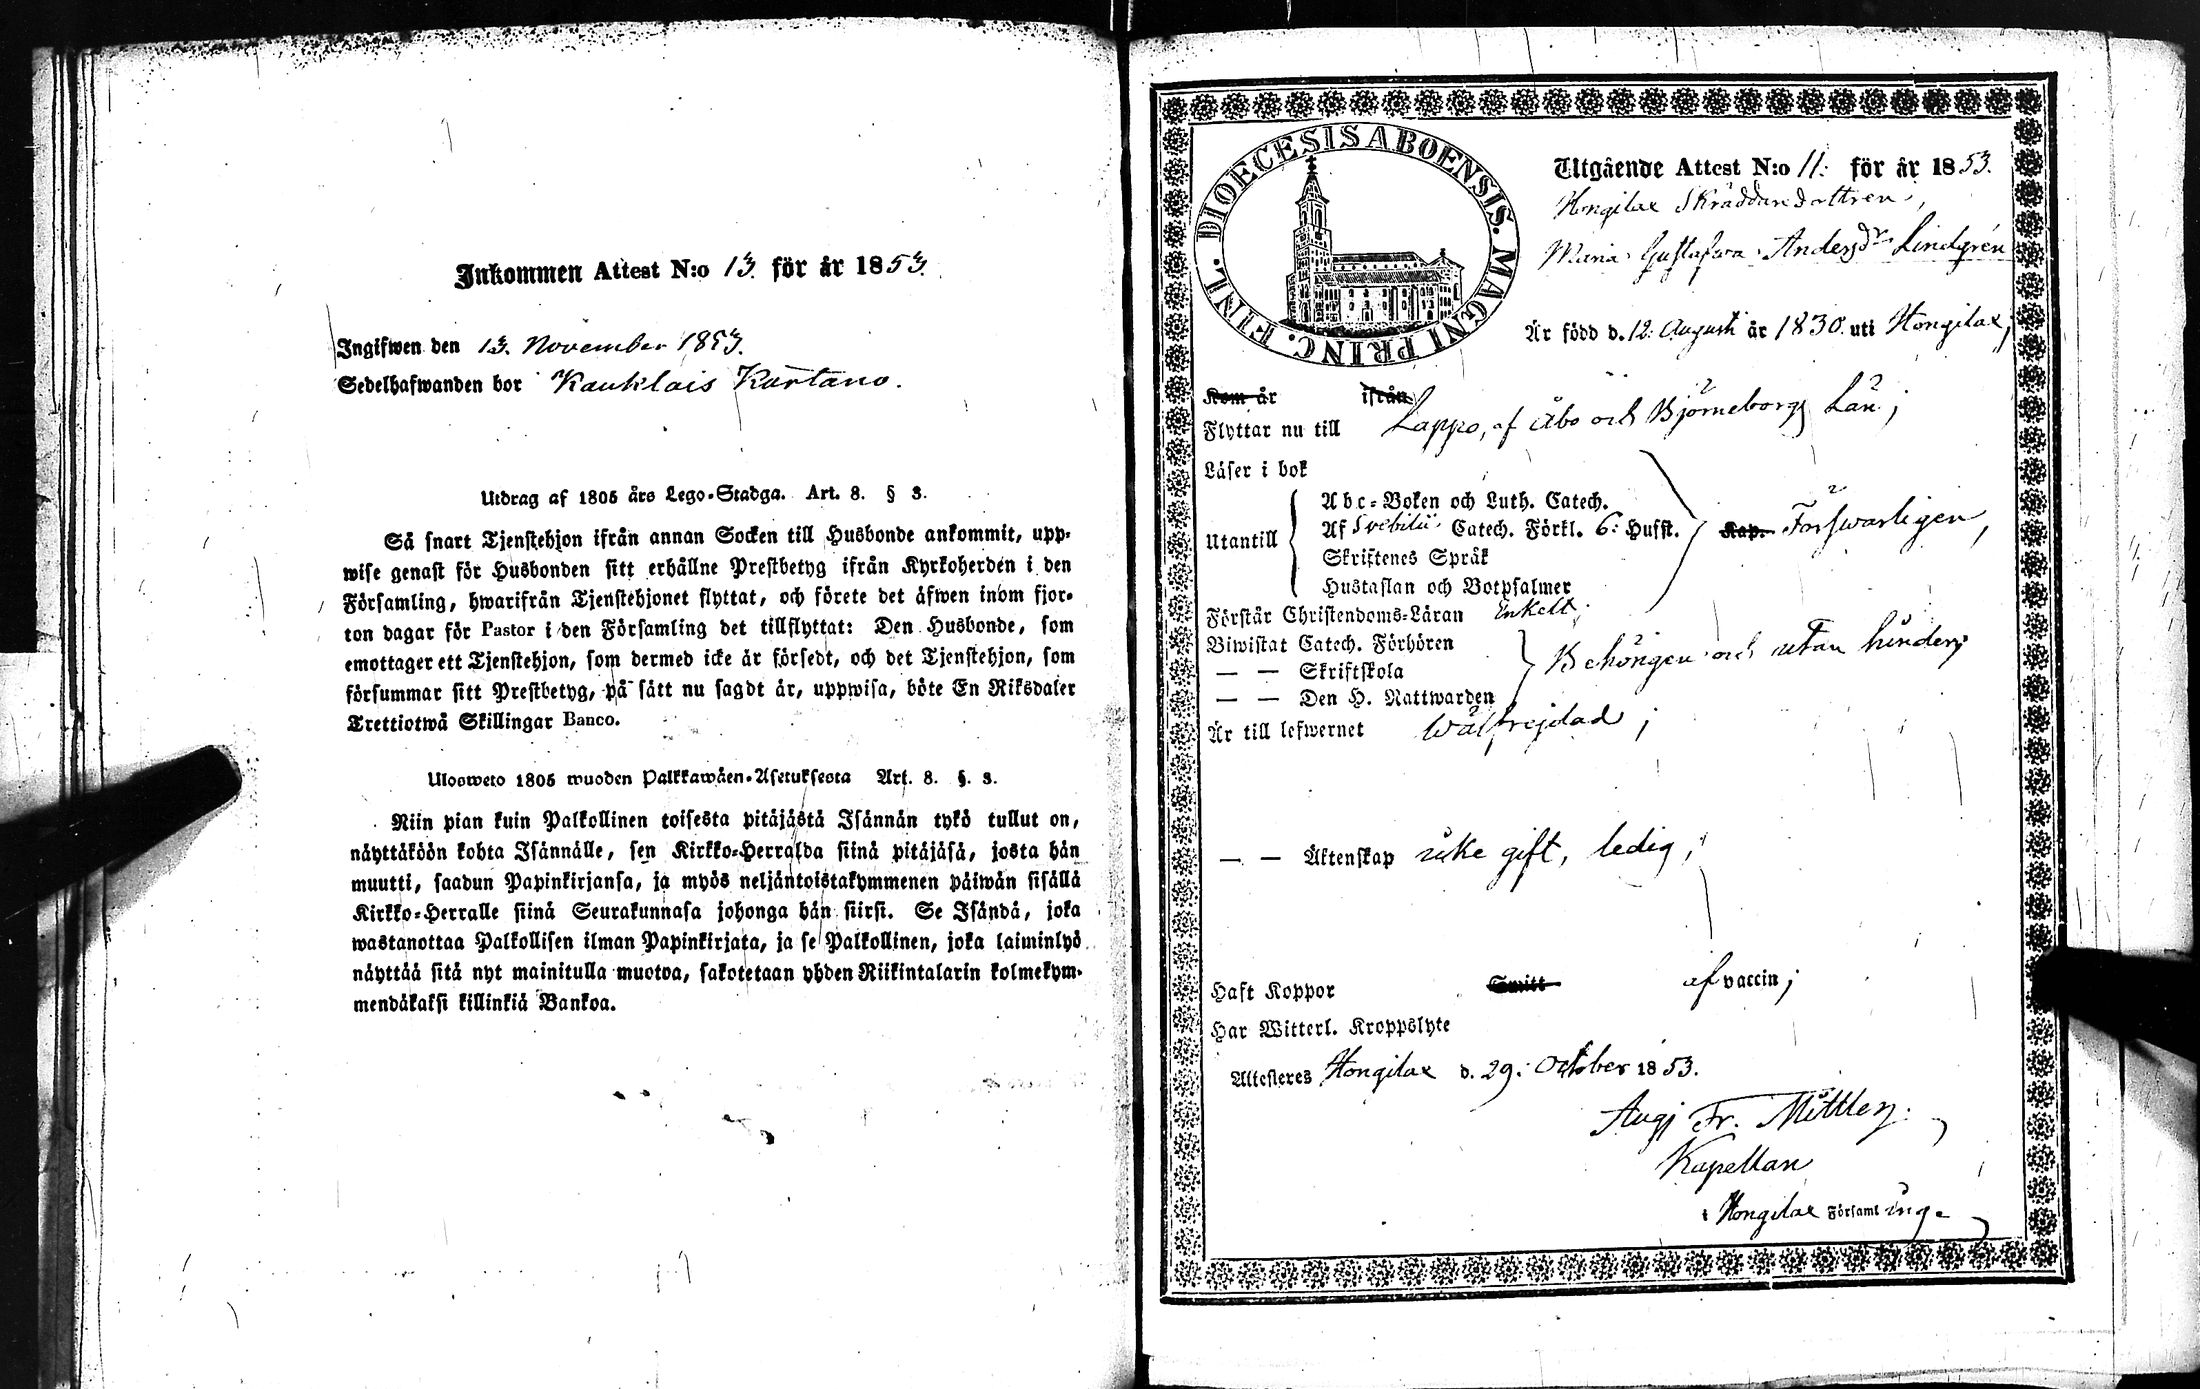 Inkommen Attest N:o 13. för år 1853.
Ingifwen den 13. November 1853.
Sedelhafwanden bor Kauklais Kartano.
Utdrag af 1805 års Lego-Stadga. Art. 8. § 3.
Så snart Tjenstehjon ifrån annan Socken till Husbonde ankommit, upp-
wise genast för Husbonden sitt erhållne Prestbetyg ifrån Kyrkoherden i den
Församling, hwarifrån Tjenstehjonet flyttat, och förete det äfwen inom fjor-
ton dagar för Pastor i den Församling det tillflyttat: Den Husbonde, som
emottager ett Tjenstehjon, som dermed icke är försedt, och det Tjenstehjon, som
försummar sitt Prestbetyg, på sätt nu sagdt är, uppwisa, böte En Riksdaler
Trettiotwå Skillingar Banco.
Ulosweto 1805 wuoden Palkkawäen-Asetuksesta Art. 8. §. 3.
Niin pian kuin Palkollinen toisesta pitäjästä Isännän tykö tullut on,
näyttäköön kohta Isännälle, sen Kirkko-Herralda siinä pitäjäsä, josta hän
muutti, saadun Papinkirjansa, ja myös neljäntoistakymmenen päiwän sisällä
Kirkko-Herralle siinä Seurakunnasa johonga hän siirsi. Se Isändä, joka
wastanottaa Palkollisen ilman Papinkirjata, ja se Palkollinen, joka laiminlyö
näyttää sitä nyt mainitulla muotoa, sakotetaan yhden Riikintalarin kolmekym-
mendäkaksi killinkiä Bankoa.
DIOECESIS ABOENSIS. MAGNI PRINC. FINL.
Utgående Attest N:o 11. för år 1853.
Hongilax Skräddaredottren,
Maria Gustafva Andersdr Lindgrén
Är född d. 12. Augusti år 1830. uti Hongilax;
Kom år ifrån
Flyttar nu till Lappo, af Åbo och Björneborgs Län;
Läser i bok
Utantill
Abc-Boken och Luth. Catech.
Af Svebilii Catech. Förkl. 6: Hufst. Kap. Förswarligen,
Skriftenes Språk
Hustaflan och Botpsalmer
Förstår Christendoms-Läran Enkelt;
Biwistat Catech. Förhören
— — Skriftskola Behörigen och utan hinder;
— — Den H. Nattwarden
Är till lefwernet Wälfrejdad;
— — Äktenskap icke gift, ledig;
Haft Koppor Smitt af vaccin;
Har Witterl. Kroppslyte
Attesteres Hongilax d. 29. October 1853.
Fr.
Kapellan
i Hongilax Församling.